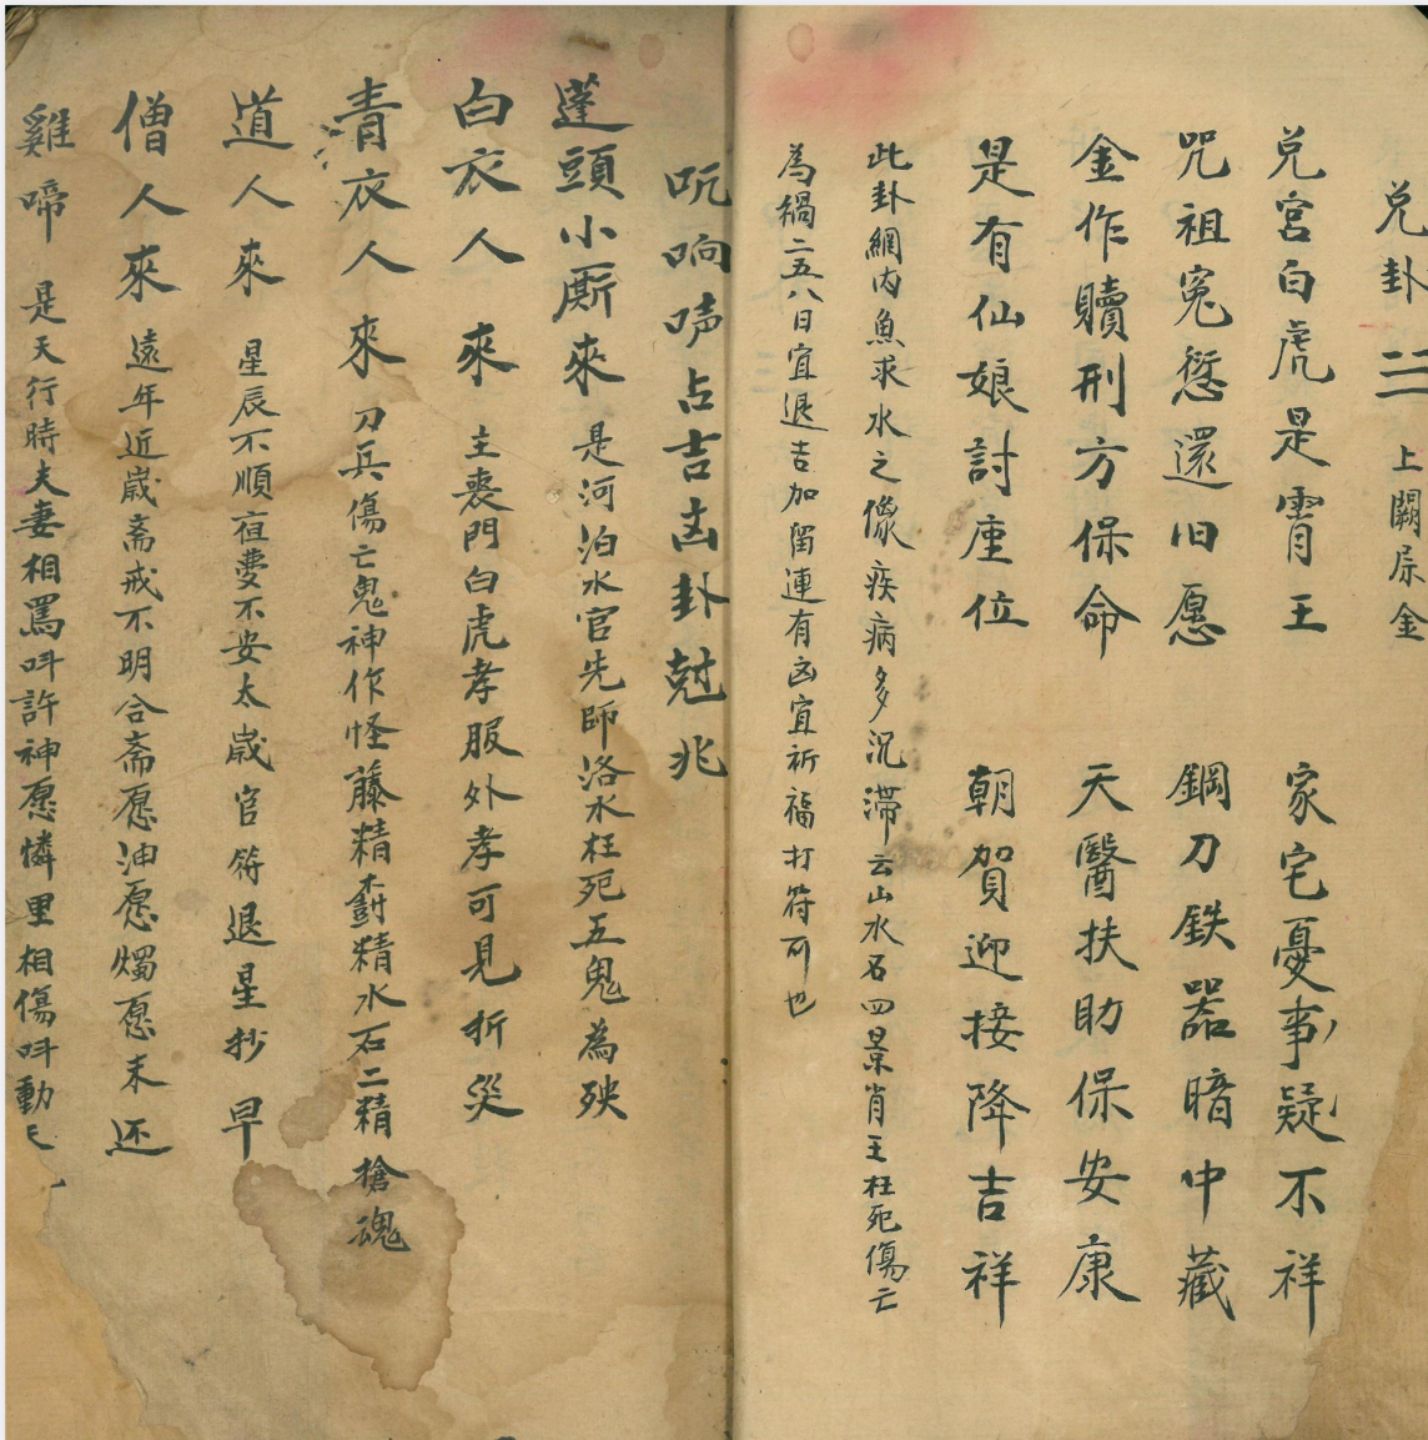 兑卦☱上闕屬金
兑宮白虎是霄王 家宅憂事疑不祥
咒祖冤愆還旧愿 鋼刀鉄器暗中藏
金作贖刑方保命 天醫扶助保安康
是有仙娘討座位 朝賀迎接降吉祥
此卦網内魚求水之像疾病多沉滞云山水石四景肖王枉死傷亡
為禍二五八日宜退吉加留連有凶宜祈福打符可也
响声占吉凶卦尅兆
蓬頭小厮來 是河泊水官先師洛水枉死五鬼為殃
白衣人來 主喪門白虎孝服外孝可見折災
青衣人來 刀兵傷亡鬼神作怪藤精精水石二精槍魂
道人來 星辰不順不安太歲官符退星抄早
僧人來 遠年近歲斋戒不明合斋愿油愿燭愿未还
雞啼 是天行時夫妻相罵呌許神愿憐里相傷呌動